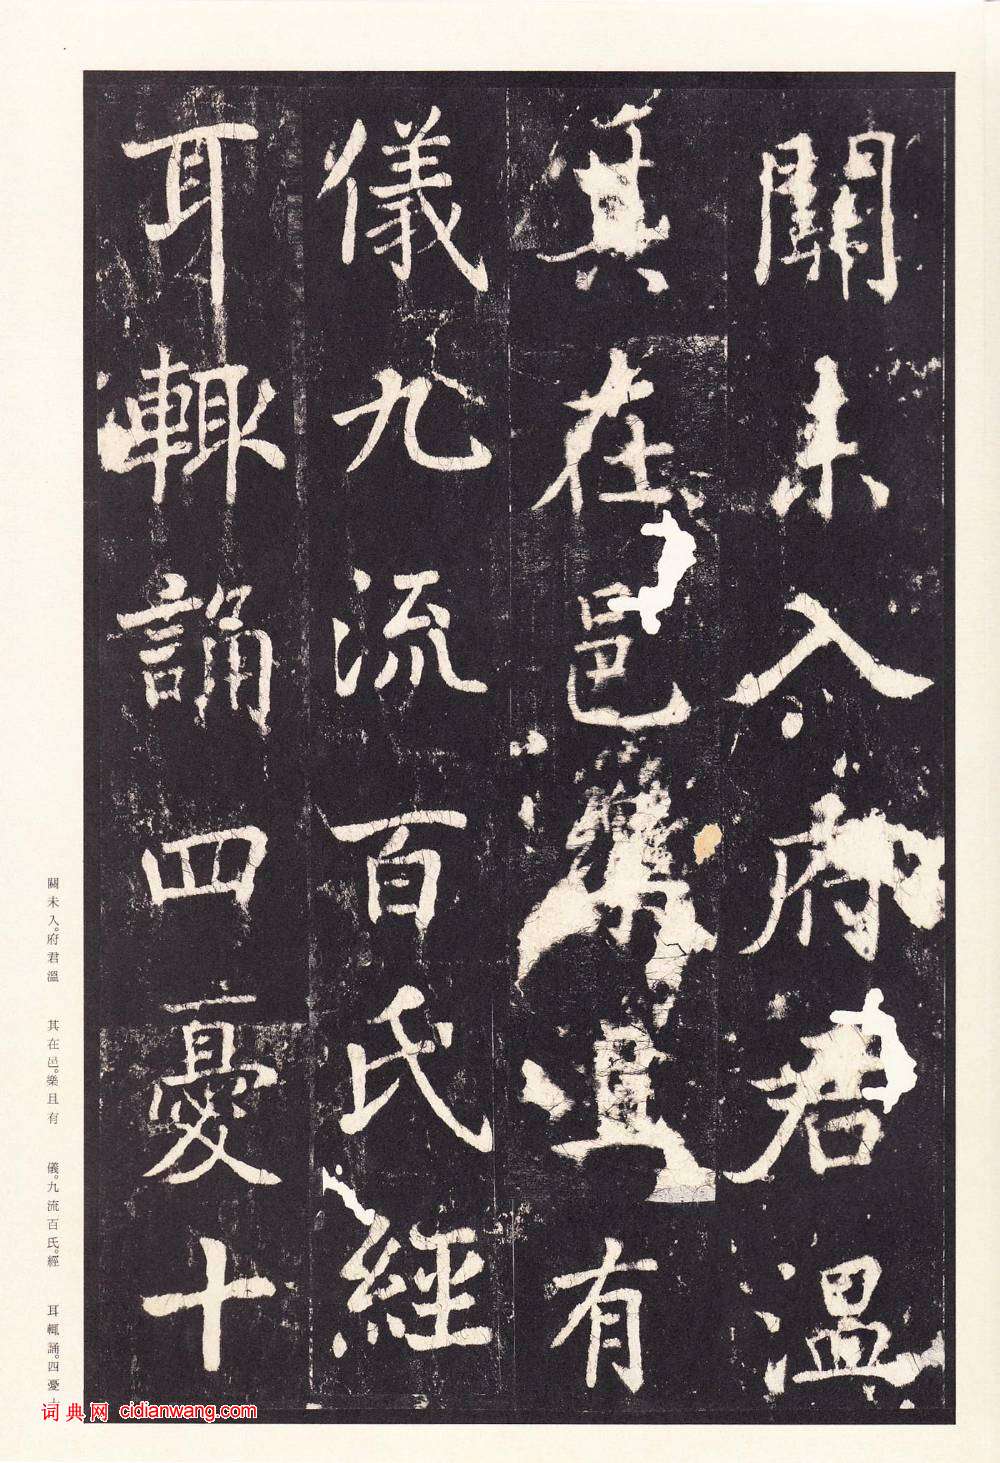 闗未入府君溫
其在邑樂且有
儀九流百氏經
耳輙誦四憂十
闗未入。府君溫　其在邑。樂且有　儀。九流百氏。經　耳輙誦。四憂十
词典网 cidianwang.com